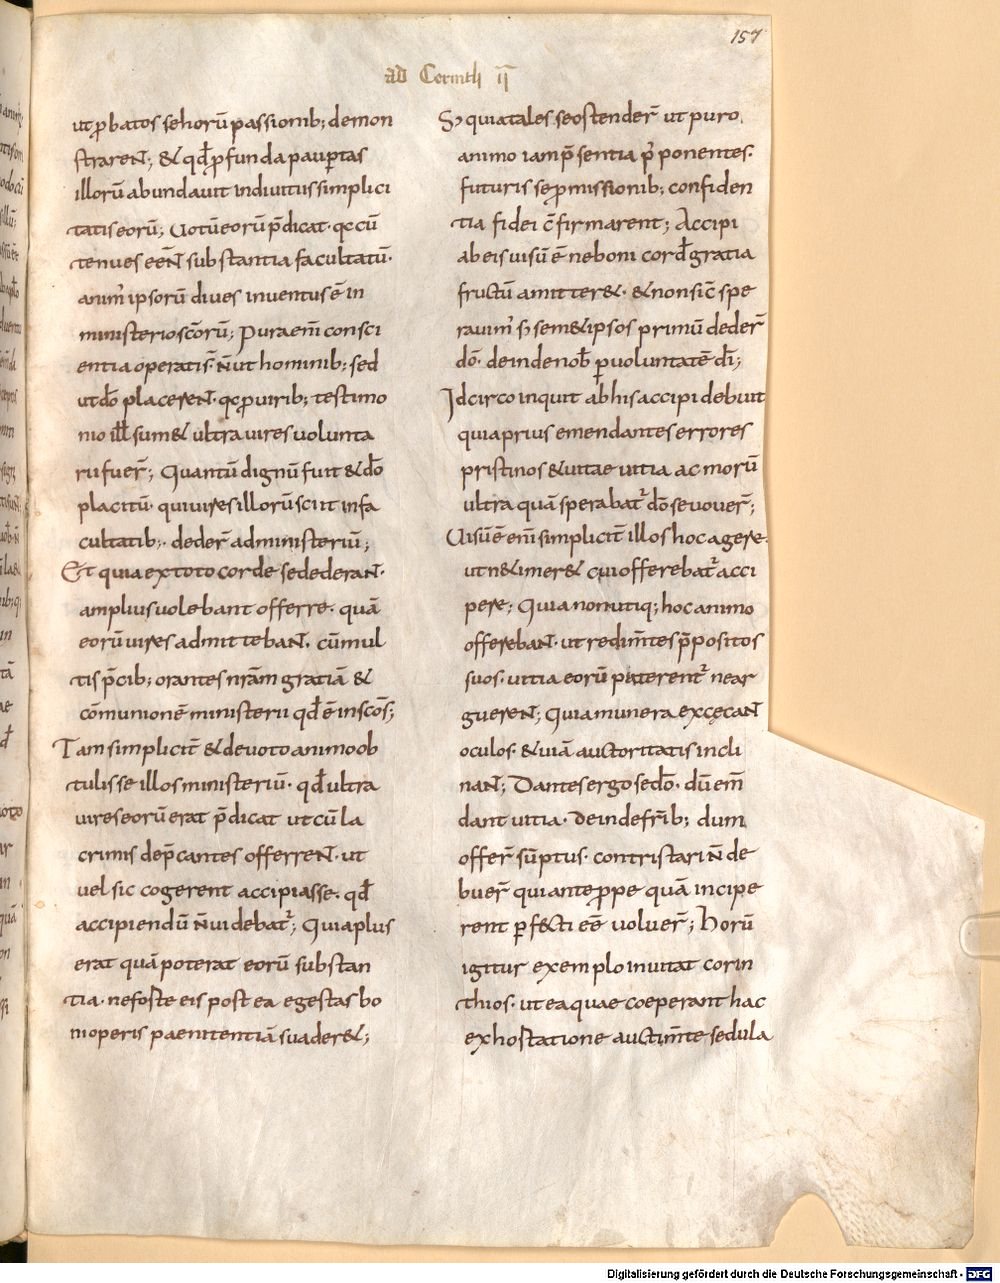 157
ad Corinth ii
ut ꝓbatos se horū passionib; demon
straren̅t; & qđ ꝓfunda paup̱tas
illorū abundauit in diuitus simplici
tatis eorū; Uotū eorū p̄dicat· qc cū
tenues eēnt substantia facultatū·
anim̄ ipsorū diues inuentus ē in
ministerio sc̄orū; Pura em̄ consci
entia operati s̄· n̄ ut hominib; sed
ut dō placerent· qc ꝓ uirib; testimo
nio ill̄ sum & ultra uires uolunta
rii fuer̄; Quantū dignū fuit & dō
placitū· qui uires illorū sciit in fa
cultatib;· deder̄ administeriū;
Et quia ex toto corde se dederant·
amplius uolebant offerre· quā
eorū uires admittebant· cū mul
tis p̄cib; orantes nr̄am gratiā &
cōmunionē ministerii qđ ē in sc̄os;
Tam simplicit̄ & deuoto animo ob
tulisse illos ministeriū· qđ ultra
uires eorū erat p̄dicat ut cū la
crimis dep̄cantes offerrent· ut
uel sic cogerent accipi asse· qđ
accipiendū n̄ uidebat᷑; Quia plus
erat quā poterat eorū substan
tia· ne foste eis post ea egestas bo
ni operis paenitentiā suader&;
S; quia tales se ostender̄ ut puro
animo iam p̄sentia p̄ponentes·
futuris se ꝓmissionib; confiden
tia fidei c̄firmarent; Accipi
ab eis uisū ē ne boni cord̄ gratia
fructū amitter&· & non sic̄ spe
rauim̄ s; sem&ipsos primū deder̄
dō· deinde nob̄ p̱ uoluntatē dī;
Idcirco inquit ab his accipi debuit
quia prius emendantes errores
pristinos & uitae uitia ac morū
ultra quā sperabat᷑ dō se uouer̄;
Uisū ē em̄ simplicit̄ illos hoc agere·
ut n& imer& cui offerebat᷑ acci
pere; Quia non utiq; hoc animo
offerebant· ut redim̄tes p̄positos
suos· uitia eorū piterent᷑ ne ar
guerent; Quia munera excęcant
oculos· & uiā auctoritatis incli
nant; Dantes ergo se dō· dū em̄
dant uitia· Deinde fr̄ib; dum
offer̄ sūptus· contristari n̄ de
buer̄ qui ante ꝓpe quā incipe
rent p̱f&ti eē uoluer̄; Horū
igitur exemplo inuitat corin
thios· ut ea quae coeperant hac
exhostatione auctim̄te sedula
Digitalisierung gefördert durch die Deutsche Forschungsgemeinschaft - DFG